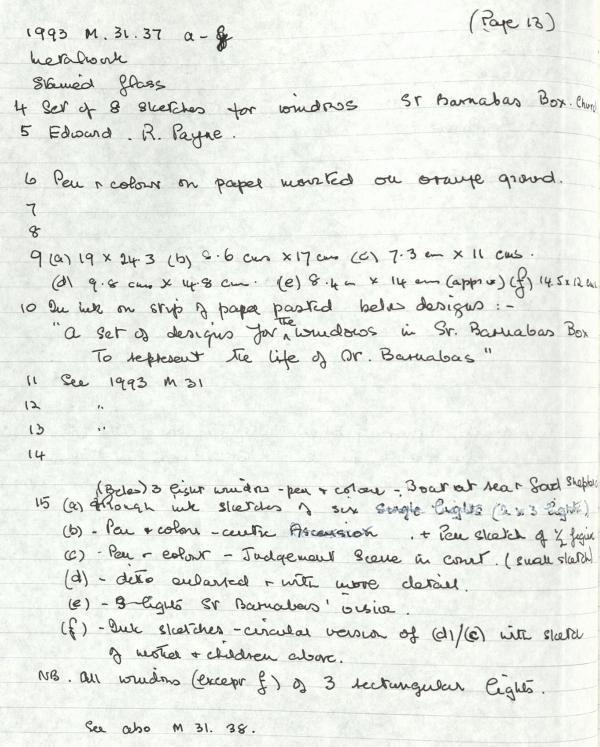 (Page 13)
1993 M.31.37 a-g
Metalwork
Stained Glass
4 Set of 8 sketches for windows St Barnabas Box. Church
5 Edward. R. Payne.
6 Pen & colour on paper mounted on orange ground.
7
8
9 (a) 19 x 24.3 (b) 9.6 cms x 17 cms (c) 7.3 cm x 11 cms.
(d) 9.8 cms x 14.8 cm. (e) 8.4 cm x 14 cms (approx) (f) 14.5 x 12 cms
10 In ink on strip of paper pasted below designs :-
"A set of designs for the windows in St. Barnabas Box
To represent the life of St. Barnabas"
11 See 1993 M 31
12 "
13 "
14
(Below) 3 light window - pen & colour - Boat at sea & Good Shepherd
15 (a) Rough ink sketches of six single lights (2 x 3 lights)
(b) - Pen & colour - centre Ascension. + Pen sketch of ½ figure
(c) - Pen & colour - Judgement Scene in court. (small sketch)
(d) - ditto enlarged & with more detail.
(e) - 3 lights St Barnabas' vision.
(f) - Ink sketches - circular version of (d)/(e) with sketch
of mother & children above.
NB. All windows (except f) of 3 rectangular lights.
See also M 31. 38.